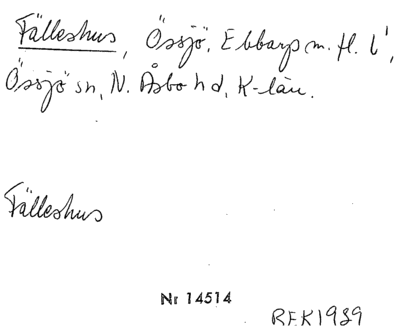 Fälleshus, Össjö, Ebbarp m. fl. l',
Össjö sn, N. Åsbo hd, K-län.
Fälleshus
Nr 14514
REK1989